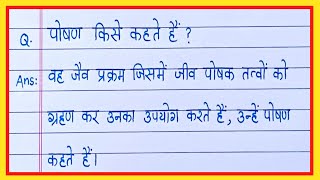 Q. पोषण किसे कहते हैं ?
Ans: वह जैव प्रक्रम जिसमें जीव पोषक तत्वों को
ग्रहण कर उनका उपयोग करते हैं, उन्हें पोषण
कहते हैं।